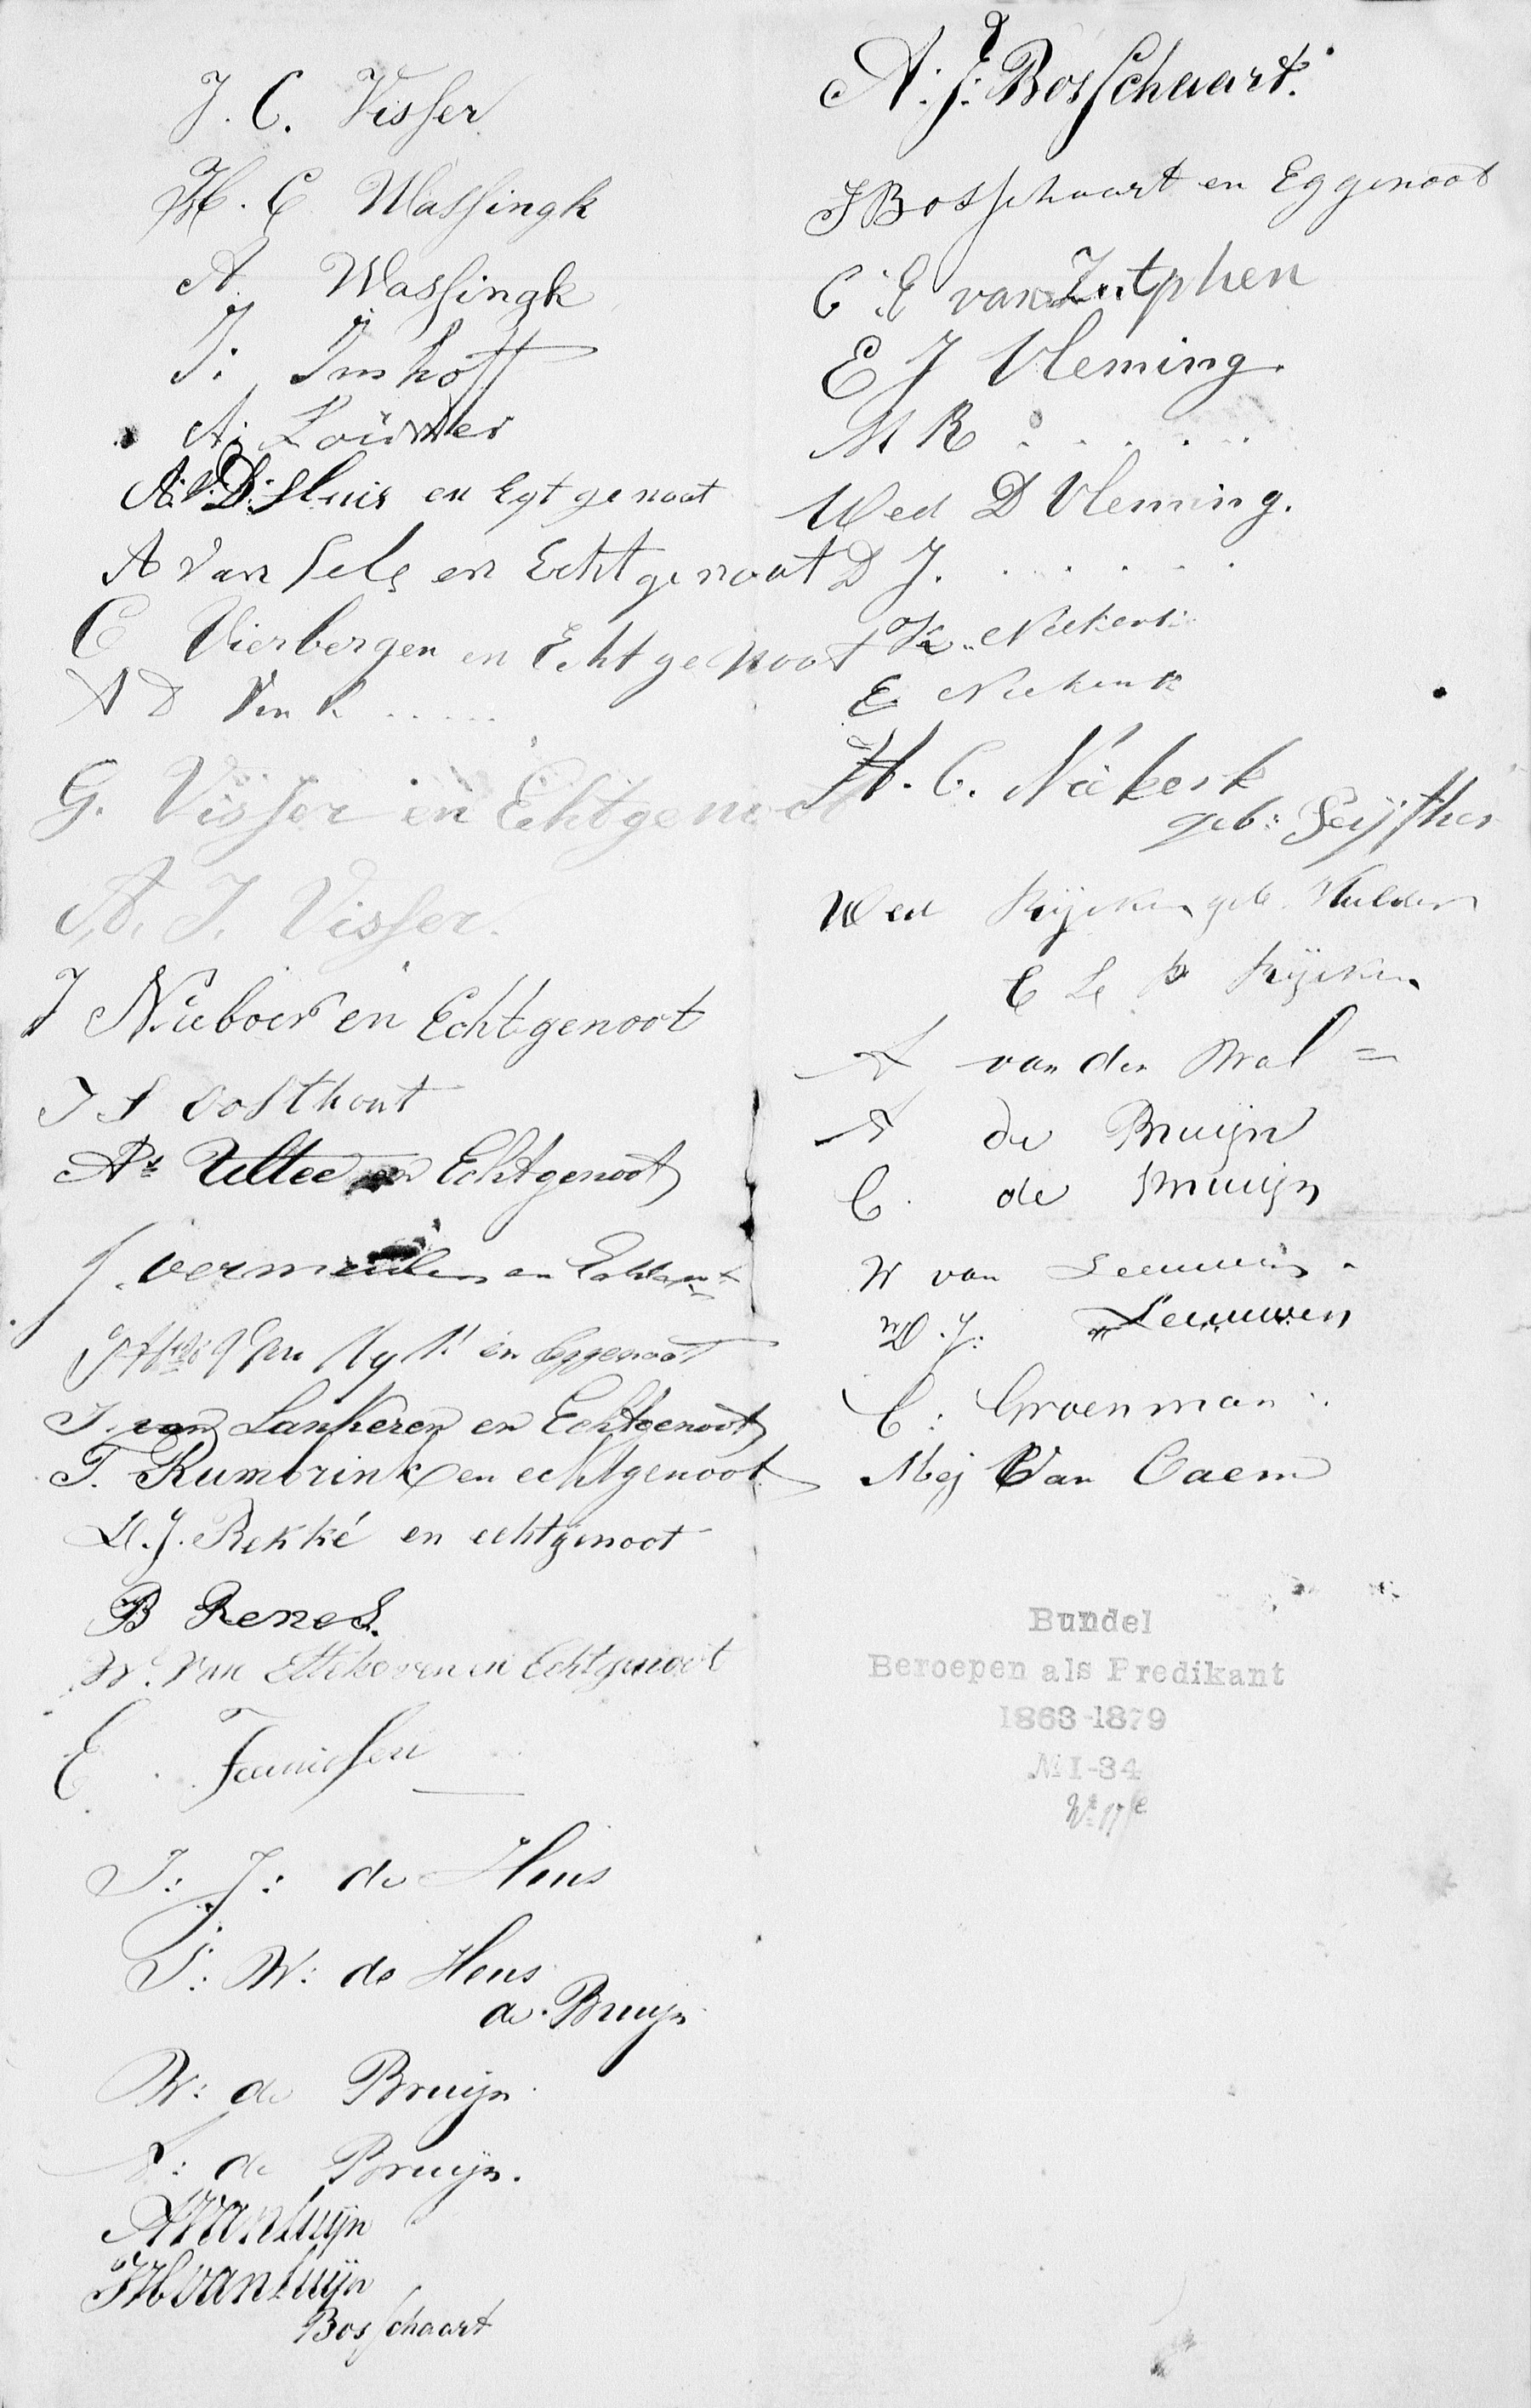 J. C. Visser
H. C Wassingk
A. Wassingk
J. Imhoff
A. Louwer
A. v. D. Sluis en Egtgenoot
A van Sels en Echtgenoot
C Vierbergen en Echtgenoot
A D Vink .....
G. Visser en Echtgenoot
A. J. Visser.
J Nieboer en Echtgenoot
J S Oosthout
As Ueltee en Echtgenoot
J. Vermeulen en
en Eggenoot
J. van Lankeren en Echtgenoot
T. Rumbrink en echtgenoot
D. J. Rekké en echtgenoot
B Renes.
W. van Ettekoven en Echtgenoot
E
J: J: de Heus
S: W: de Heus
de Bruijn
W: de Bruijn
A: de Bruijn.
A van Luijn
JH van Luijn
Bosschaart
A. J. Bosschaart.
J Bosschaart en Eggenoot
C. E van Zutphen
E J Vleming.
M R . . . . . .
Wed D Vleming.
D J. . . . . . .
K. Niekerk
E. Niekerk
H. C. Niekerk
geb:
Wed Rijcken geb. Mulder
C L Rijcken
A van der Wal =
A de Bruijn
C. de Bruijn
W van Leeuwen.
D. J. " Leeuwen
C: Groenman.
Mej Van Caem
Bundel
Beroepen als Predikant
1863-1879
№ 1-34